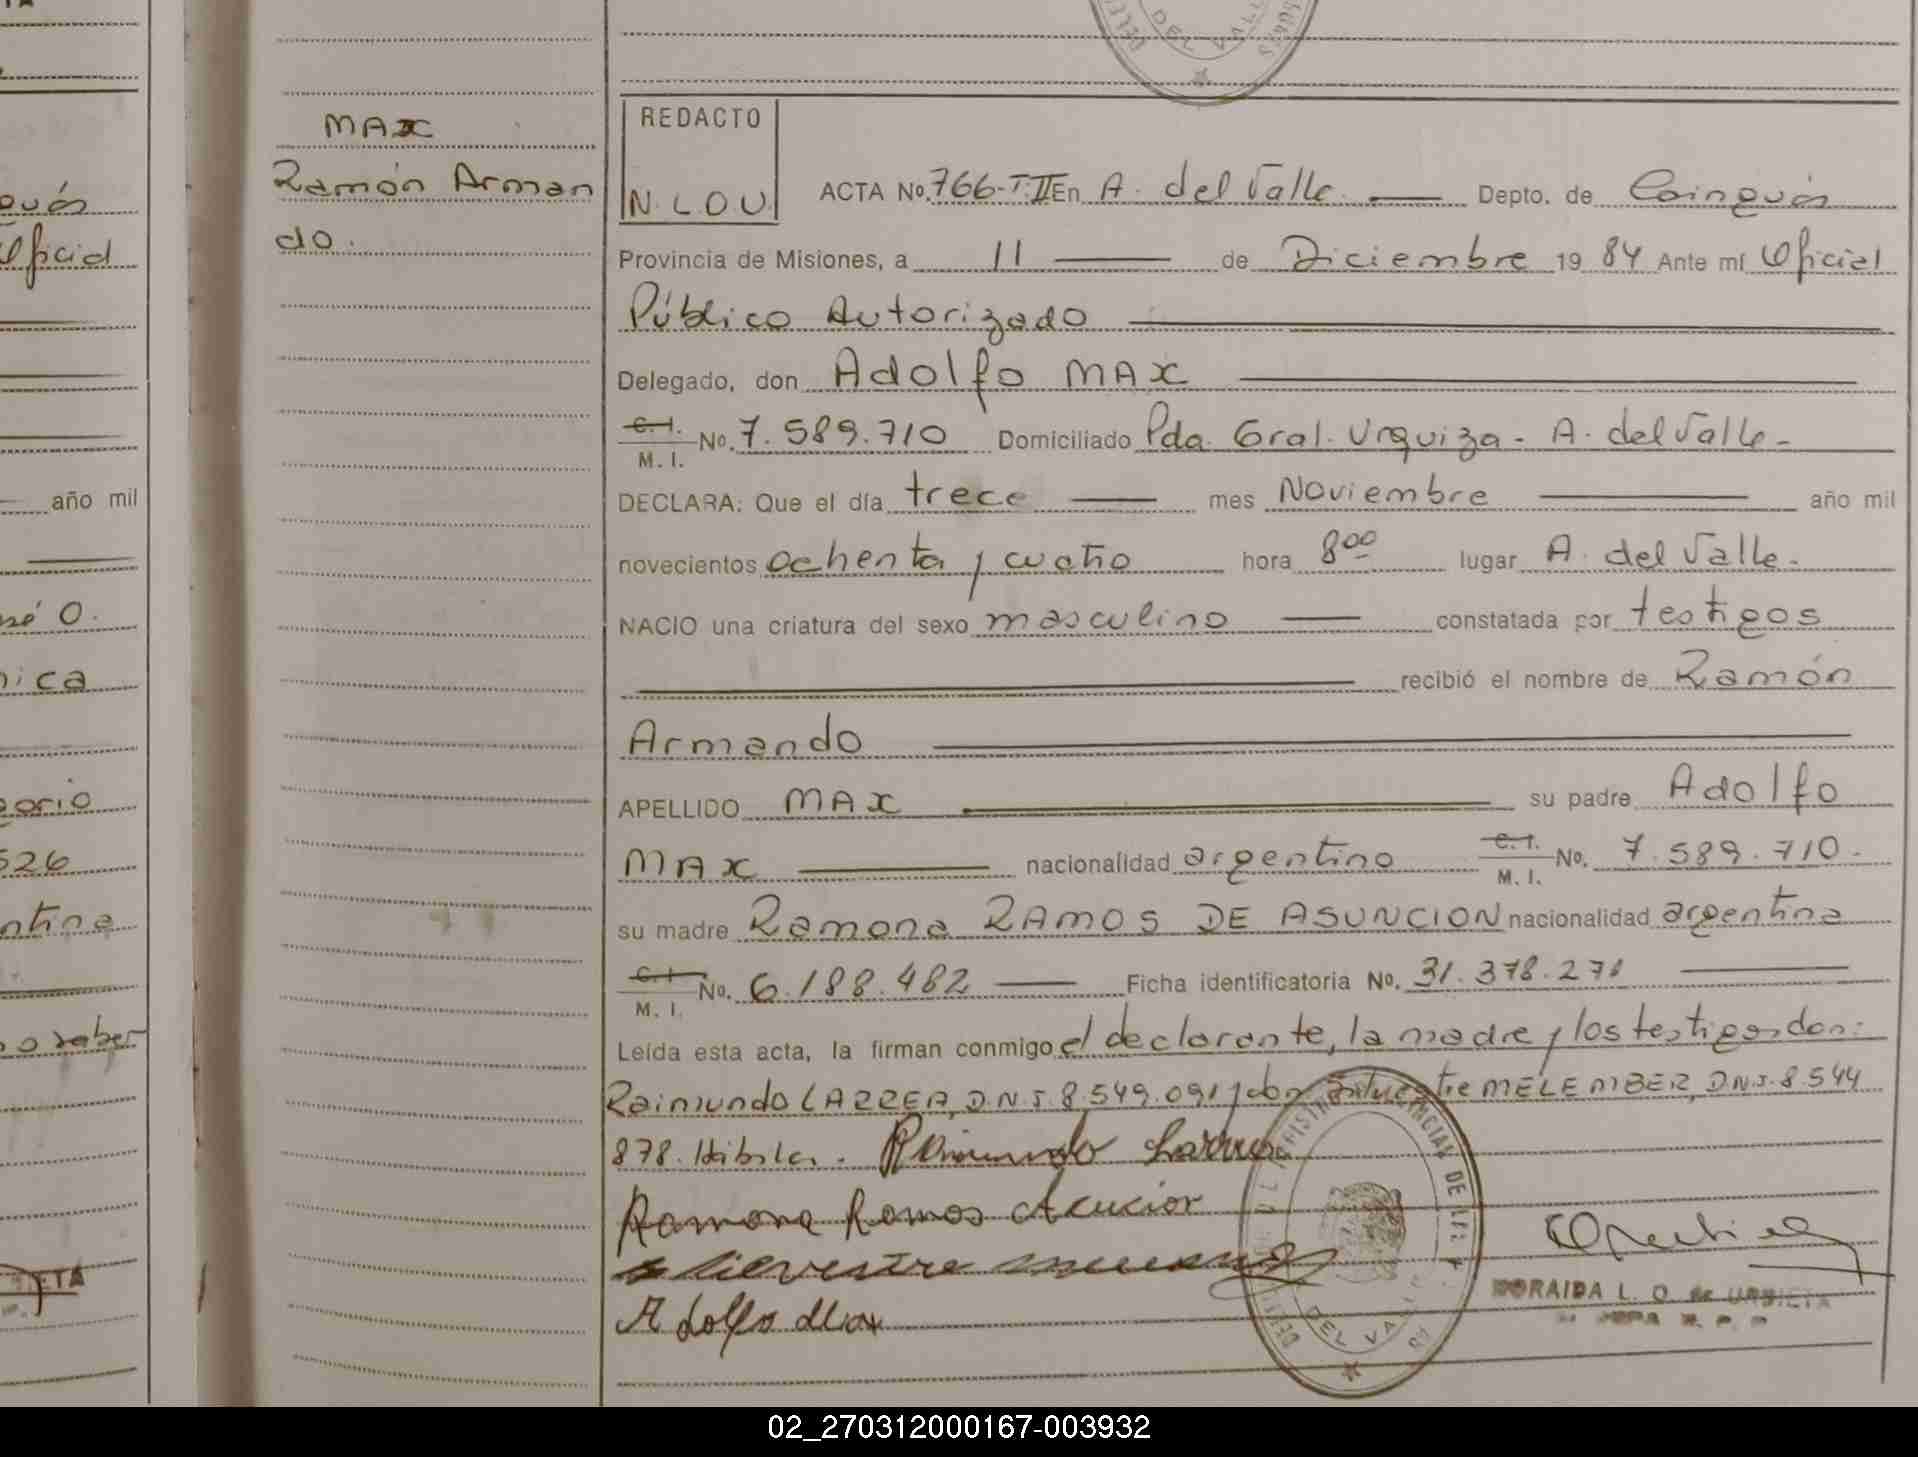 MAX
Ramón Arman
do.
REDACTO
N.L.O.U.
ACTA No. 766-T.II En A. del Valle. Depto. de Cainguás
Provincia de Misiones, a 11 de Diciembre 19 84 Ante mí Oficial
Público Autorizado
Delegado, don Adolfo MAX
C.I. M.I. No. 7.589.710 Domiciliado Pda. Gral. Urquiza - A. del Valle -
DECLARA: Que el día trece mes Noviembre año mil
novecientos ochenta y cuatro hora 8 00 lugar A. del Valle.
NACIO una criatura del sexo masculino constatada por testigos
recibió el nombre de Ramón
Armando
APELLIDO MAX su padre Adolfo
MAX nacionalidad argentino C.I. M.I. No. 7.589.710.
su madre Ramona RAMOS DE ASUNCION nacionalidad argentina
C.I. M.I. No. 6.188.482 Ficha identificatoria No. 31.378.271
Leída esta acta, la firman conmigo el declarante, la madre y los testigos don:
Raimundo LARREA, D.N.I. 8.549.091 y don MELEMBER, D.N.I. 8.544
878. Hábiles.
Raimundo Larrea
Ramona Ramos
Adolfo Max
DORAIDA L. O. de URBIETA
DEL VALLE
año mil
02_270312000167-003932